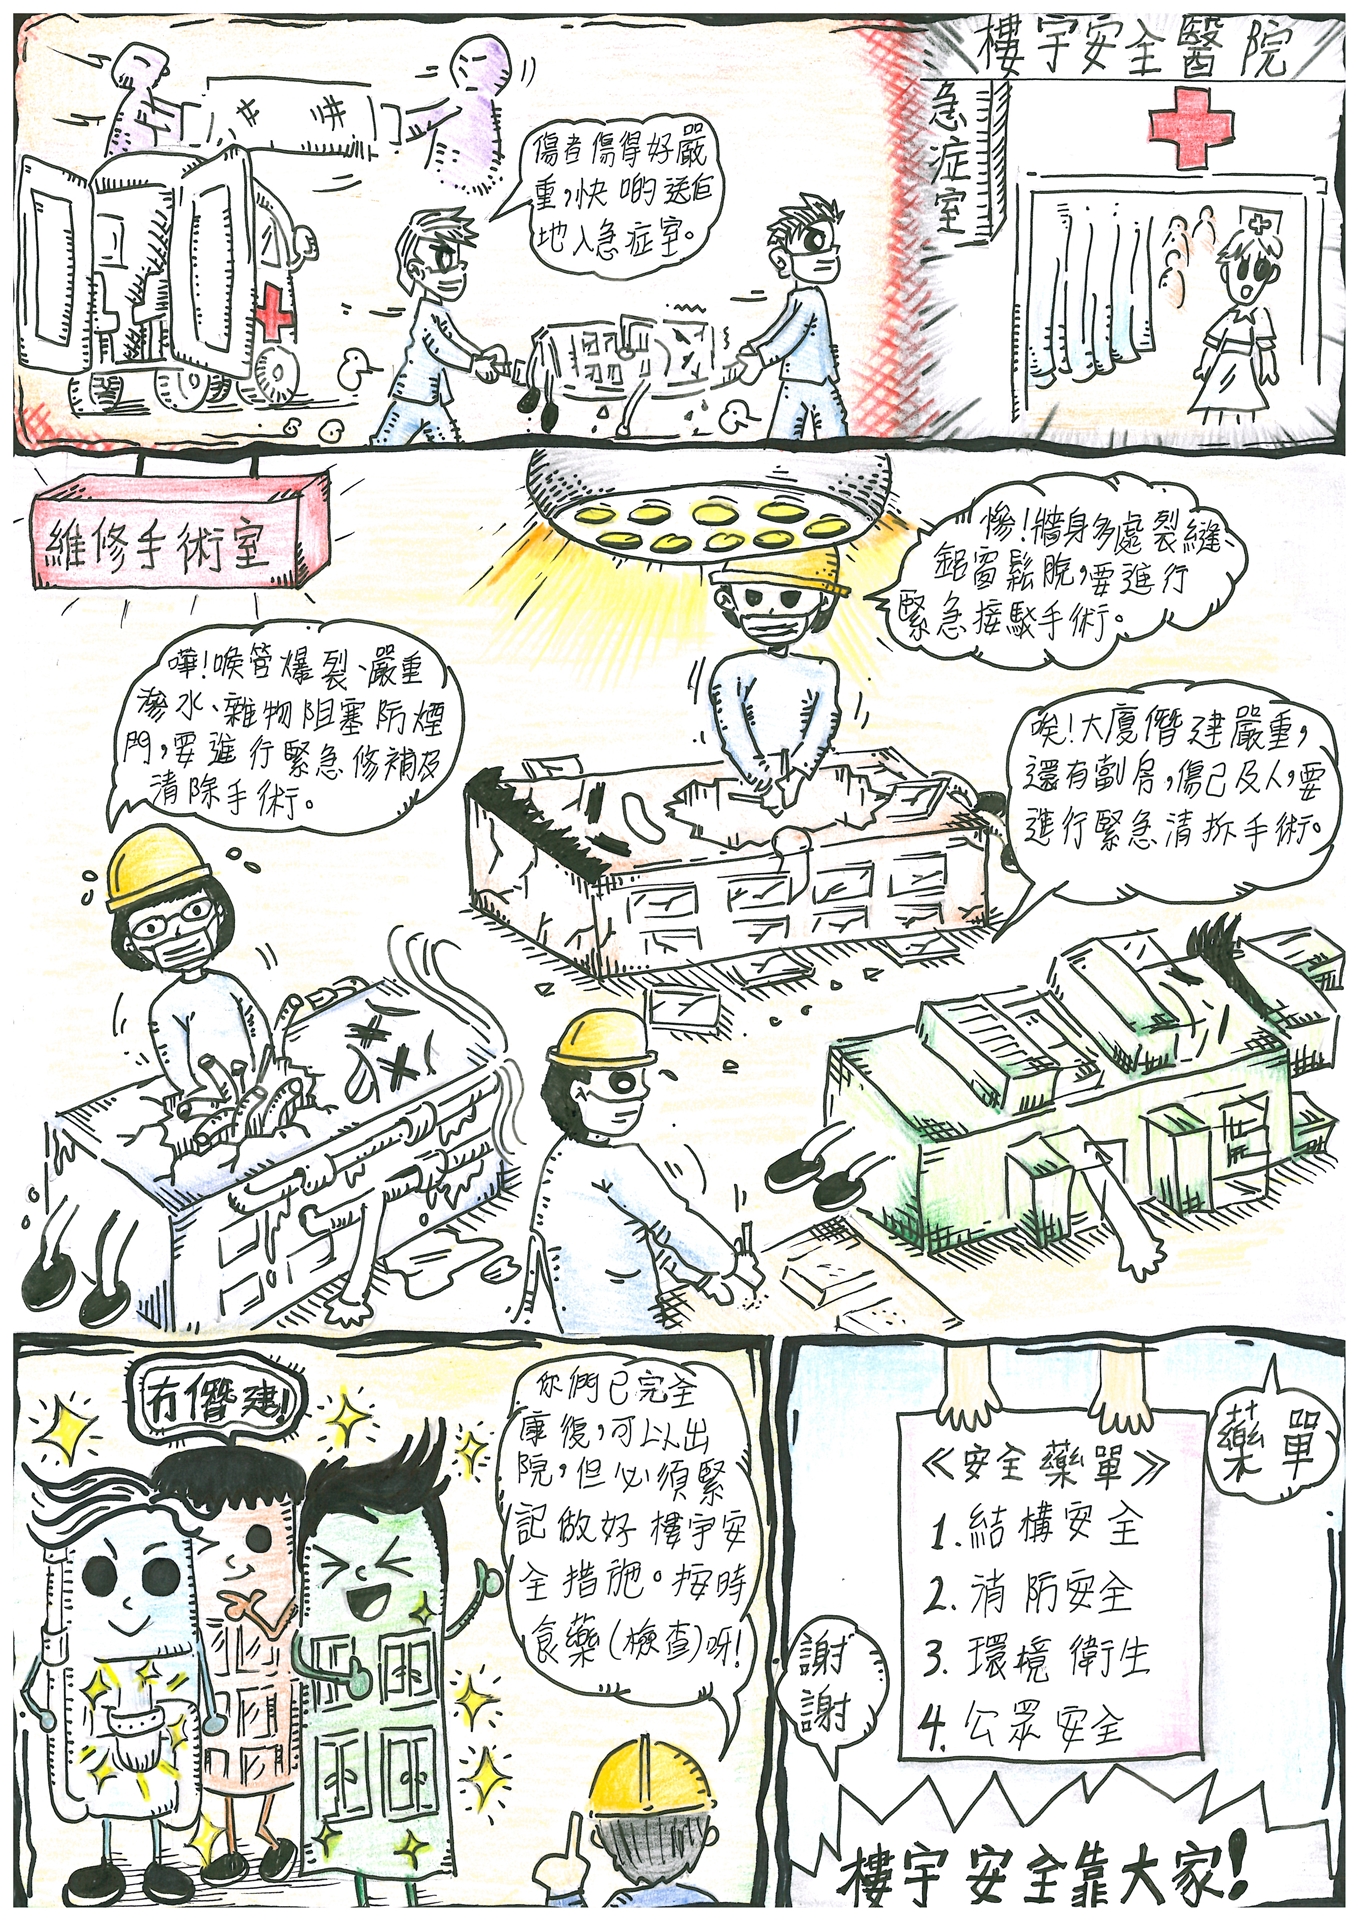 樓宇安全醫院
急症室
傷者傷得好嚴
重，快啲送佢
地入急症室。
維修手術室
慘！牆身多處裂縫、
鋁窗鬆脫，要進行
緊急接駁手術。
嘩！喉管爆裂、嚴重
滲水、雜物阻塞防煙
門，要進行緊急修補及
清除手術。
唉！大廈僭建嚴重，
還有劏房，傷己及人，要
進行緊急清拆手術。
冇僭建！
你們已完全
康復，可以出
院，但必須緊
記做好樓宇安
全措施。按時
食藥（檢查）呀！
藥單
《安全藥單》
1. 結構安全
2. 消防安全
3. 環境衛生
4. 公眾安全
謝
謝
樓宇安全靠大家！